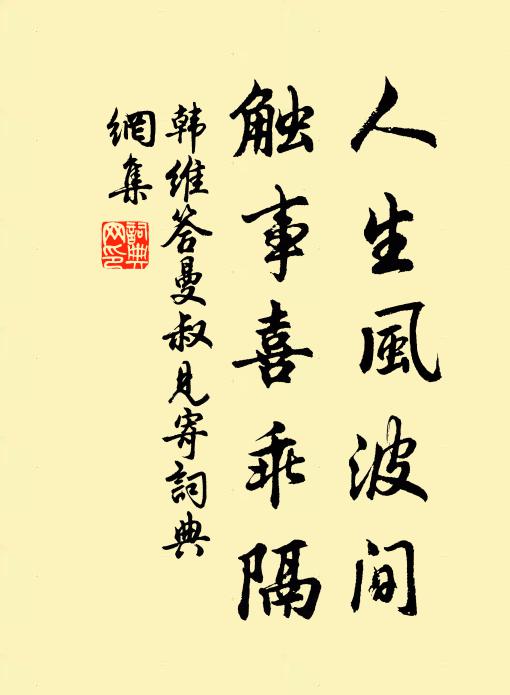 人生風波间
触事喜乖隔
韩维答曼叔见寄詞典
網集
詞典
网印